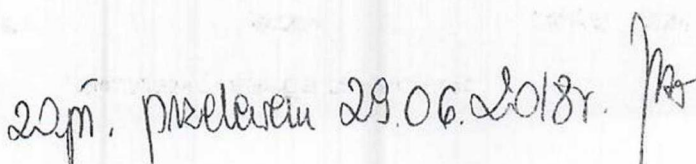 zapł. przelewem 29.06.2018r.